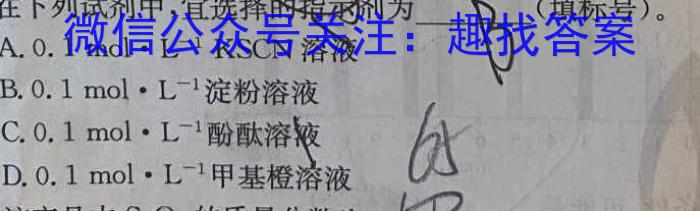 在下列试剂中,宜选择的指示剂为____(填标号)。
微信公众号关注：趣找答案
A. 0.1 mol·L⁻¹ KSCN溶液
B. 0.1 mol·L⁻¹淀粉溶液
C. 0.1 mol·L⁻¹酚酞溶液
D. 0.1 mol·L⁻¹甲基橙溶液